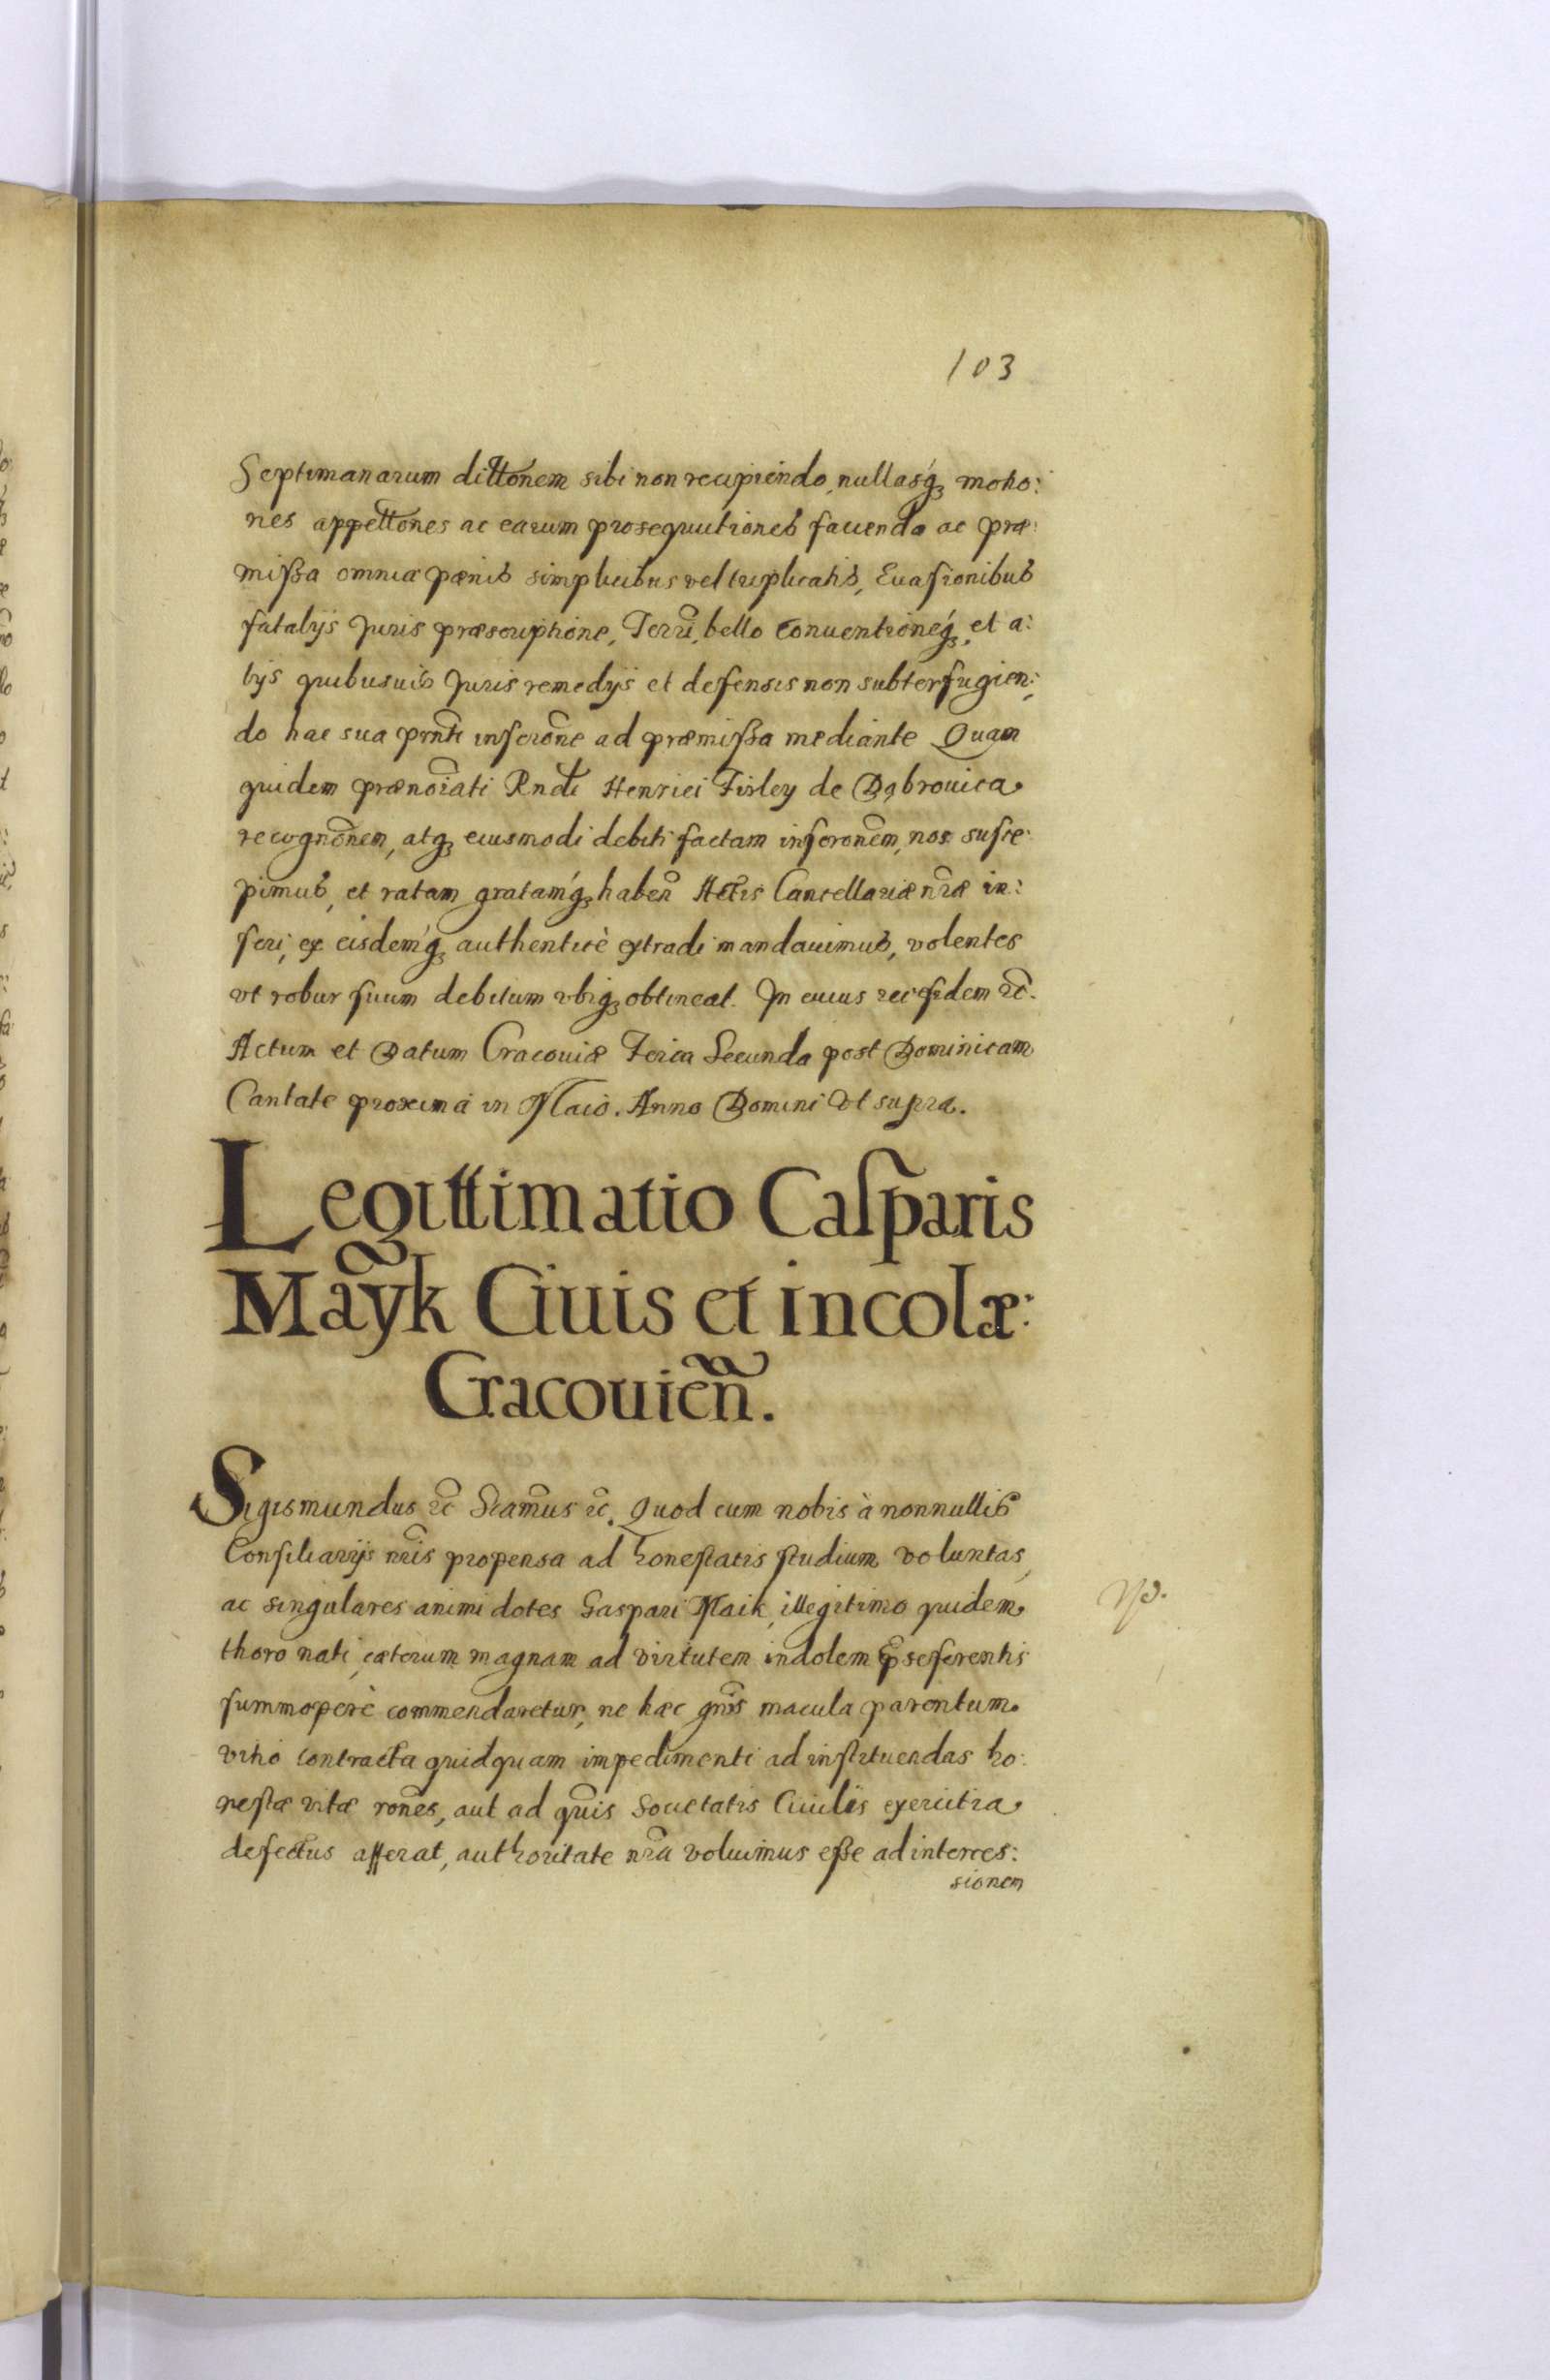 103
Septimanarum dittonem sibi non recipiendo, nullasq́ꝫ motio:
nes appettones ac earum prosequutiones fauendo ac præ:
mißa omnia pœnis simplicibus vel triplicatis, Euasionibus
fatalijs Juris præscriptione, Terrī, bello Conuentioneq́ꝫ, et a:
lijs quibusuis Juris remedijs et defensis non subterfugien:
do hac sua prn̄ti inscrōne ad præmißa mediante Quam
quidem prænoīati Rndi Henrici Firley de Dąbrouica
recognōnem, atqꝫ eiusmodi debiti factam inscrōnem, nos susce:
pimus, et ratam gratamq́ꝫ haben̄ Actis Cancellariæ nr̄æ in:
seri, ex eisdemq́ꝫ authenticè extradi mandauimus, volentes
vt robur suum debitum vbiqꝫ obtineat. In cuius rei fidem ꝛc̄.
Actum et Datum Cracouiæ Feria Secunda post Dominicam
Cantate proxima in Maio. Anno Domini vt supra.
Legittimatio Casparis
Mayk Ciuis et incolæ:
Cracouien̄.
Sigismundus ꝛc̄ Sc̄amus ꝛc̄. Quod cum nobis à nonnullis
Consiliarijs nr̄is propensa ad honestatis studium voluntas,
ac singulares animi dotes Gaspari Maik, illegitimo quidem
thoro nati, cæterum magnam ad virtutem indolem ꝓ se ferentis
summoperè commendaretur, ne hæc gn̄is macula parentum
vitio contracta quidquam impedimenti ad instituendas ho:
nestæ vitæ rōnes, aut ad qūis Societatis Ciuilis exercitia
defectus afferat, authoritate nr̄a voluimus eße ad interces:
sionem